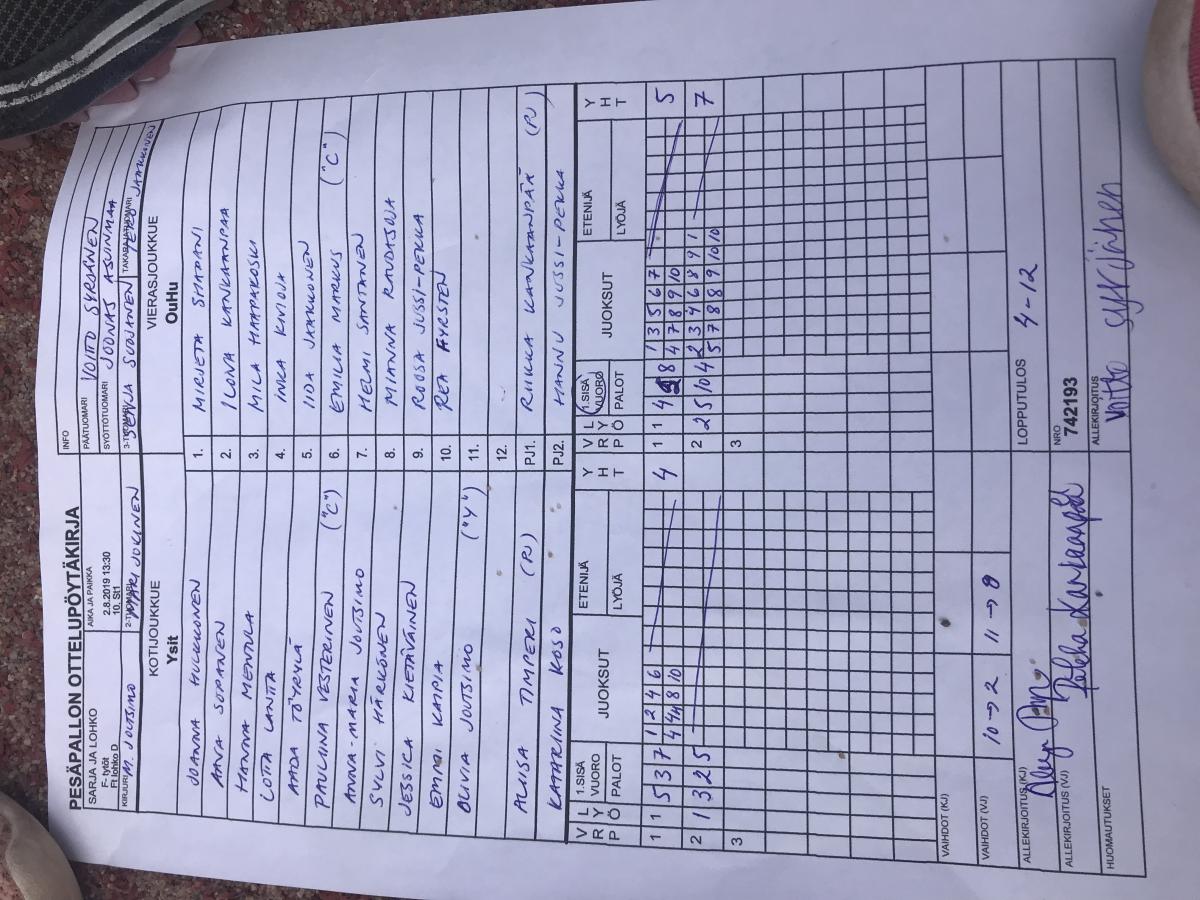 PESÄPALLON OTTELUPÖYTÄKIRJA
SARJA JA LOHKO
F- tytöt
Ft lohko D
AIKA JA PAIKKA
2.8.2019 13:30
10. St1
INFO
PÄÄTUOMARI VOITTO SYRJÄNEN
SYÖTTÖTUOMARI JOONAS ASUINMAA
KIRJURI M. JOUTSIMO
2-TUOMARI MARI JOKINEN
3-TUOMARI SENJA SUOJANEN
TAKARAJATUOMARI EERO JAAKKONEN
KOTIJOUKKUE
Ysit
VIERASJOUKKUE
OuHu
JOANNA HULKKONEN 1. MIRJETA SHABANI
ANNA SOPANEN 2. ILONA KANKAANPÄÄ
HANNA MENTULA 3. MILA HAAPAKOSKI
LOTTA LANTTA 4. INKA KIVIOJA
AADA TÖYRYLÄ 5. IIDA JAAKKONEN
PAULIINA VESTERINEN ("C") 6. EMILIA MARKUS ("C")
ANNA-MARIA JOUTSIMO 7. HELMI SANTANEN
SYLVI HÄRKÖNEN 8. MIANNA RAUDASOJA
JESSICA KIETÄVÄINEN 9. ROOSA JUSSI-PEKKA
EMMI KAPIA 10. REA FYRSTEN
OLIVIA JOUTSIMO ("Y") 11.
12.
ALIISA TIMPERI (PJ) PJ1. RIIKKA KANKAANPÄÄ (PJ)
KATARIINA KOSO PJ2. HANNU JUSSI-PEKKA
V R P L Y Ö 1.SISÄ VUORO PALOT JUOKSUT ETENIJÄ LYÖJÄ Y H T V R P L Y Ö 1.SISÄ VUORO PALOT JUOKSUT ETENIJÄ LYÖJÄ Y H T
1 1 5 3 7 1 2 4 6 4 1 1 4 8 1 3 5 6 7 5
4 4 8 10 4 7 8 9 10
2 1 3 2 5 2 2 5 10 4 2 3 4 6 8 9 1 7
5 7 8 8 9 10 10
3 3
VAIHDOT (KJ)
VAIHDOT (VJ) 10→2 11→8
ALLEKIRJOITUS (KJ)
LOPPUTULOS 4-12
ALLEKIRJOITUS (VJ) Pekka Kankaanpää
NRO
742193
HUOMAUTUKSET
ALLEKIRJOITUS
Voitto Syrjänen